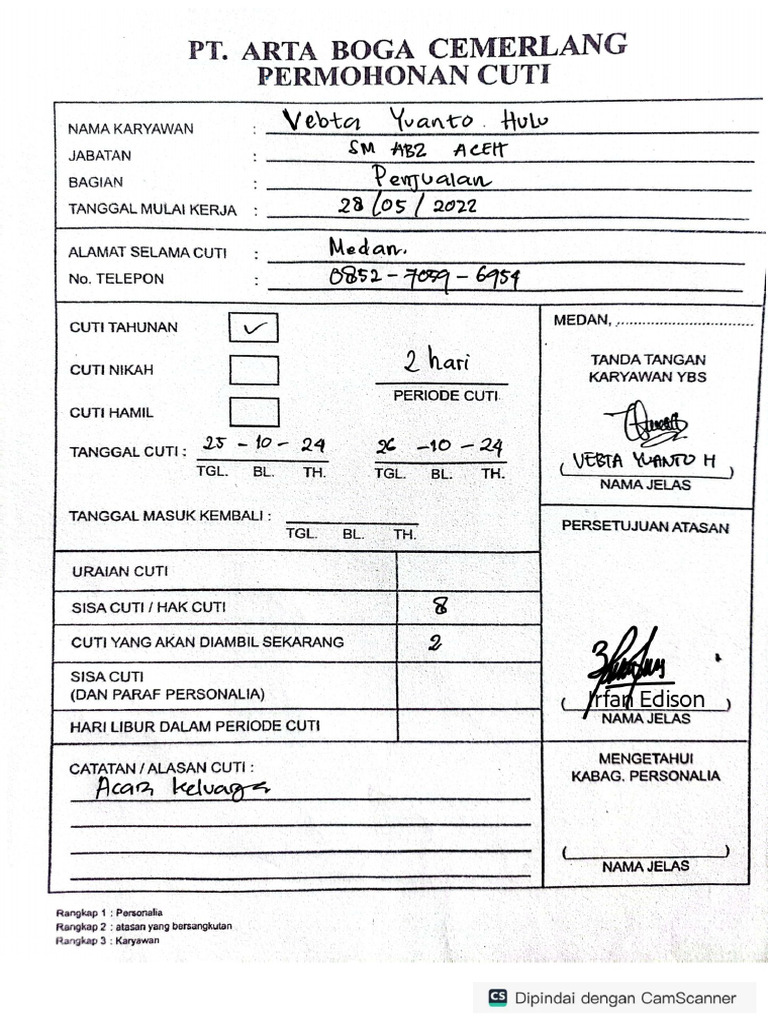 PT. ARTA BOGA CEMERLANG
PERMOHONAN CUTI
NAMA KARYAWAN : Vebta Yuanto Hulu
JABATAN : SM ABZ ACEH
BAGIAN : Penjualan
TANGGAL MULAI KERJA : 28/05/2022
ALAMAT SELAMA CUTI : Medan.
No. TELEPON : 0852-7059-6954
CUTI TAHUNAN ✓
CUTI NIKAH
CUTI HAMIL
2 hari
PERIODE CUTI
TANGGAL CUTI : 25-10-24 26-10-24
TGL. BL. TH. TGL. BL. TH.
TANGGAL MASUK KEMBALI :
TGL. BL. TH.
MEDAN, ..............................
TANDA TANGAN
KARYAWAN YBS
(VEBTA YUANTO H)
NAMA JELAS
PERSETUJUAN ATASAN
(Irfan Edison)
NAMA JELAS
URAIAN CUTI
SISA CUTI / HAK CUTI 8
CUTI YANG AKAN DIAMBIL SEKARANG 2
SISA CUTI
(DAN PARAF PERSONALIA)
HARI LIBUR DALAM PERIODE CUTI
CATATAN / ALASAN CUTI :
Acara keluarga
MENGETAHUI
KABAG. PERSONALIA
( )
NAMA JELAS
Rangkap 1 : Personalia
Rangkap 2 : atasan yang bersangkutan
Rangkap 3 : Karyawan
CS Dipindai dengan CamScanner